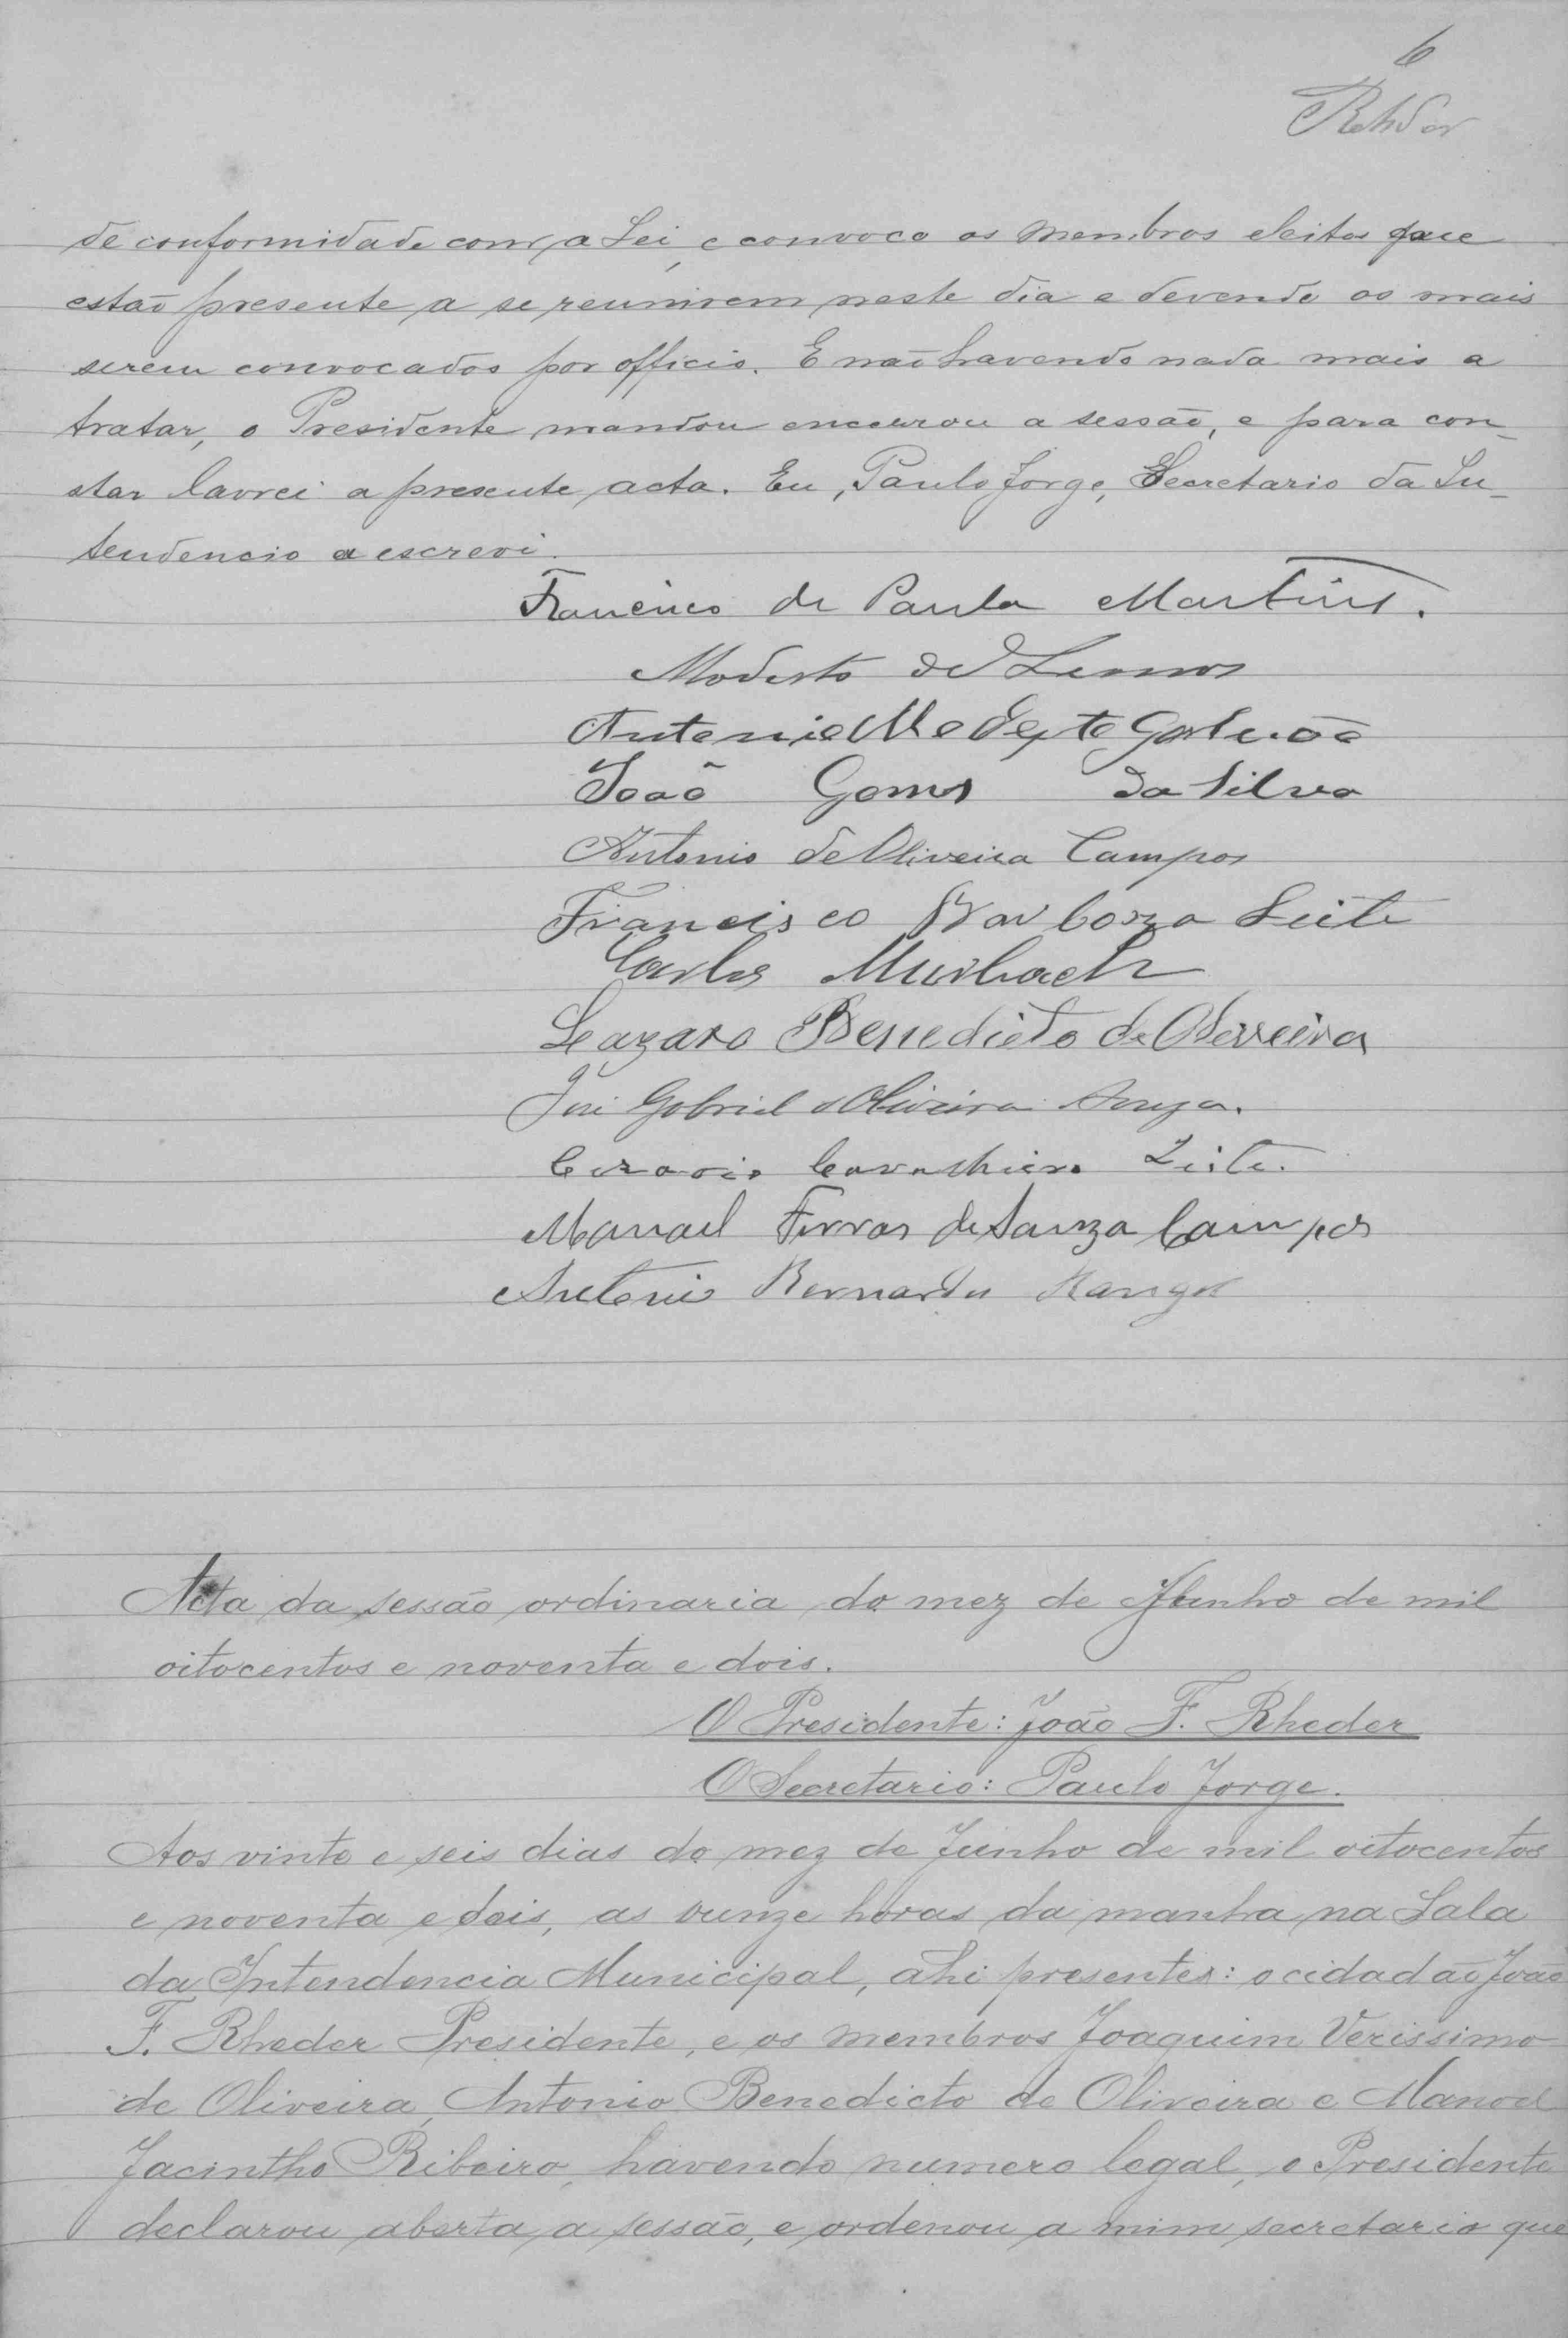 6
Rehder
de conformidade com a Lei, e convoco os membros eleitos que
estão presente a se reunirem neste dia e devendo os mais
serem convocados por officio. E não havendo nada mais a
tratar, o Presidente mandou encerrou a sessão, e para con_
star lavrei a presente acta. Eu, Paulo Jorge, Secretario da In_
tendencio a escrevi.
Francisco de Paula Martins.
Modesto de Lemos
Antonio Modesto Galvão
João Gomes da Silva
Antonio de Oliveira Campos
Francisco Barboza Leite
Carlos Murbach
Leazaro Benedicto de Oliveira
José Gabriel d'Oliveira Souza.
Leite.
Manoel Ferras de Souza Campos
Antonio Bernardu Rangel
Acta da sessão ordinaria do mez de Junho de mil
oitocentos e noventa e dois.
O Presidente: João F. Rheder
O Secretario: Paulo Jorge.
Aos vinte e seis dias do mez de Junho de mil oitocentos
e noventa e dois, as ounze horas da manha na Sala
da Intendencia Municipal, ahi presentes: o cidadão João
F. Rheder Presidente, e os membros Joaquim Verissimo
de Oliveira, Antonio Benedicto de Oliveira e Manoel
Jacintho Ribeiro, havendo numero legal, o Presidente
declarou aberta a sessão, e ordenou a mim secretario que